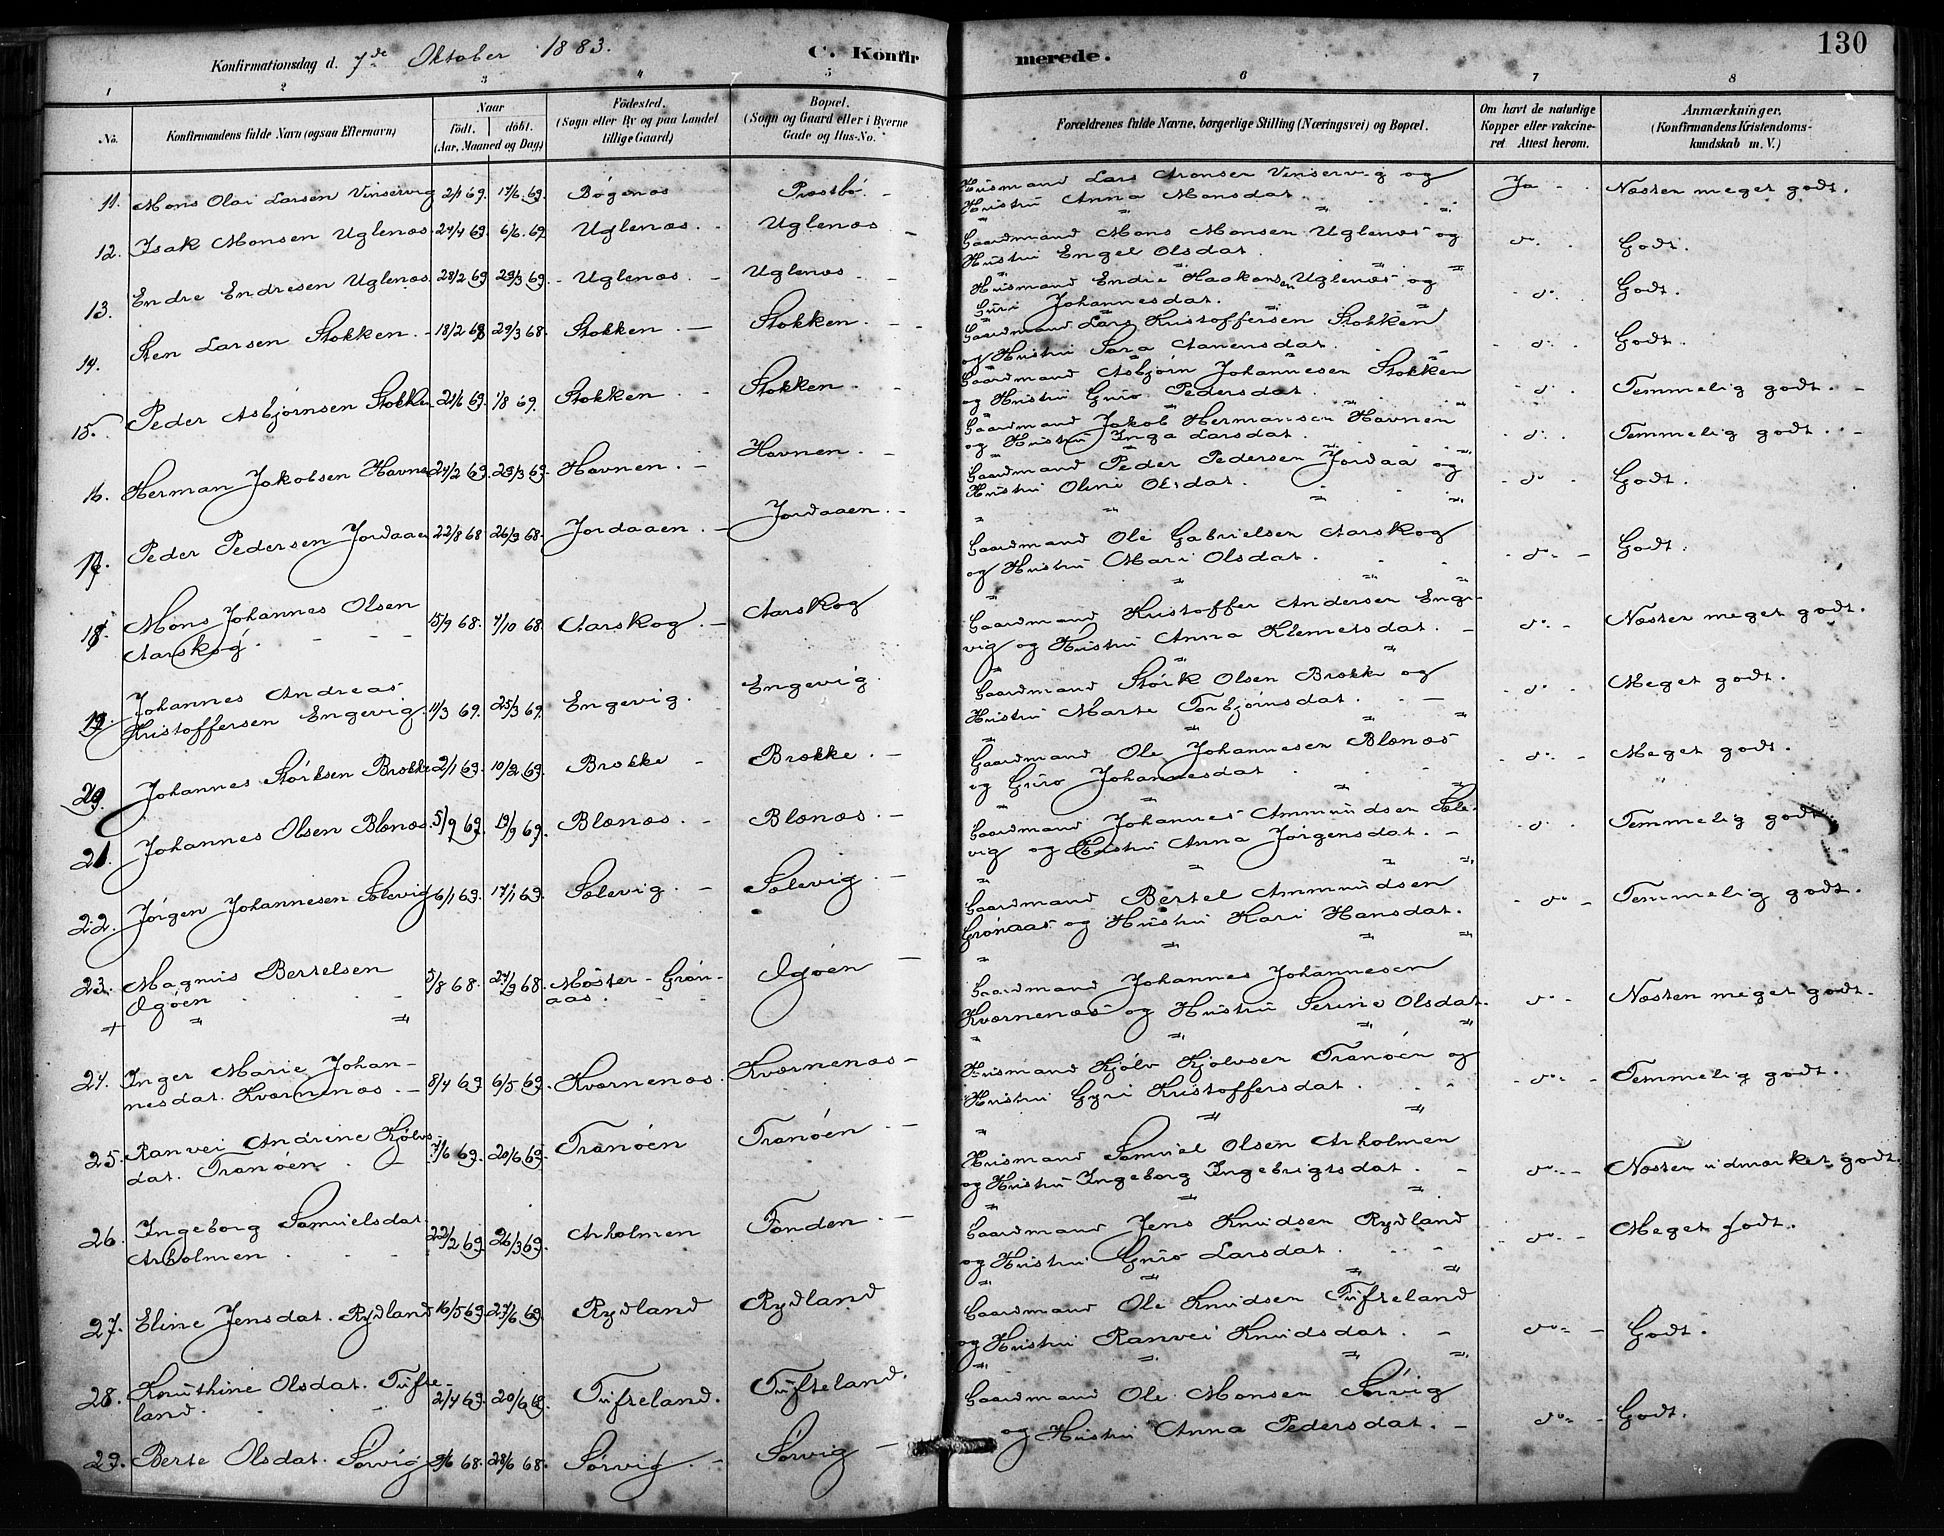 130
Konfirmationsdag d. 7de Oktober 1883.
C. Konfirmerede.
1 2 3 4 5 6 7 8
No.
Konfirmandens fulde Navn (ogsaa Efternavn)
Naar
født. døbt.
(Aar, Maaned og Dag)
Fødested.
(Sogn eller By og paa Landet
tillige Gaard)
Bopæl.
(Sogn og Gaard eller i Byerne
Gade og Hus-No.
Forældrenes fulde Navne, borgerlige Stilling (Næringsvei) og Bopæl.
Om havt de naturlige
Kopper eller vakcine-
ret Attest herom.
Anmærkninger.
(Konfirmandens Kristendoms-
kundskab m. V.)
11. Mons Olai Larsen Vinservig 2/1 69. 17/6. 69. Bøgenæs Præstbø. Husmand Lars Aronsen Vinservig og
Hustru Anna Monsdat. Ja Næsten meget godt.
12. Isak Monsen Uglenæs. 24/4 69. 6/6. 69 Uglenæs. Uglenæs Gaardmand Mons Monsen Uglenæs og
Hustru Engel Olsdat. do. Godt.
13. Endre Endresen Uglenæs. 28/2 69 29/3 69. Uglenæs. Uglenæs Husmand Endre Haakonsen Uglenæs og
Guri Johannesdat. do. Godt.
14. Sten Larsen Stokken. 18/2 68 29/3 68. Stokken. Stokken. Gaardmand Lars Kristoffersen Stokken
og Hustru Sara Aanensdat. do. Godt.
15. Peder Asbjørnsen Stokken 21/6 69. 1/8 69. Stokken. Stokken. Gaardmand Asbjørn Johannesen Stokken
og Hustru Guro Pedersdat. do. Temmelig godt.
16. Herman Jakobsen Havnen 24/2 69. 29/3 69. Havnen. Havnen. Gaardmand Jakob Hermansen Havnen
og Hustru Inga Larsdat. do. Temmelig godt.
17. Peder Pedersen Jordaaen 22/8 68 26/9 68. Jordaaen. Jordaaen. Gaardmand Peder Pedersen Jordaa og
Hustru Oline Olsdat. do Godt.
18. Mons Johannes Olsen
Aarskog. 15/9 68. 4/10 68. Aarskog. Aarskog Gaardmand Ole Gabrielsen Aarskog
og Hustru Mari Olsdat. do. Godt.
19. Johannes Andreas
Kristoffersen Engevig. 11/3 69. 25/3 69. Engevig. Engevig. Gaardmand Kristoffer Andersen Enge-
vig og Hustru Anna Klemetsdat. do. Næsten meget godt.
20. Johannes Størksen Brække 2/1 69. 10/2 69. Brække Brække. Gaardmand Størk Olsen Brække og
Hustru Marte Torbjørnsdat. do. Meget godt.
21. Johannes Olsen Blænæs. 5/9 69. 19/9 69. Blænæs. Blænæs. Gaardmand Ole Johannesen Blænæs
og Guro Johannesdat do. Meget godt.
22. Jørgen Johannesen Sælevig 6/1 69. 17/1 69. Sælevig. Sælevig. Gaardmand Johannes Ammundsen Sæle-
vig og Hustru Anna Jørgensdat. do. Temmelig godt.
23. Magnus Bertelsen
Øgøen 5/8 68. 27/9 68. Møster - Grøn-
aas. Øgøen Gaardmand Bertel Ammundsen
Grønaas og Hustru Kari Hansdat. do Temmelig godt.
24. Inger Marie Johan-
nesdat. Kværnenæs. 8/4 69. 6/5 69. Kværnenæs. Kværnenæs Gaardmand Johannes Johannesen
Kværnenæs og Hustru Serine Olsdat. do Næsten meget godt.
25. Ranvei Andrine Kjølvs-
dat. Tranøen 7/6 69. 20/6 69. Tranøen Tranøen Husmand Kjølv Kjølvsen Tranøen og
Hustru Gyri Kristoffersdat. do. Temmelig godt.
26. Ingeborg Samuelsdat.
Arholmen 22/2 69 26/3 69. Arholmen Tonden. Husmand Samuel Olsen Arholmen
og Hustru Ingeborg Ingebrigtsdat. do. Næsten udmærket godt.
27. Eline Jensdat. Rydland 16/5 69 27/6 69. Rydland Rydland Gaardmand Jens Knudsen Rydland
og Hustru Guro Larsdat. do. Meget godt.
28. Knuthine Olsdat. Tufte-
land. 2/4 69. 20/6 69. Tufteland. Tufteland. Gaardmand Ole Knudsen Tufteland
og Hustru Ranvei Knudsdat. do. Godt.
29. Berte Olsdat. Sørvig 9/6 68. 28/6 68. Sørvig. Sørvig Gaardmand Ole Monsen Sørvig
og Hustru Anna Pedersdat. do Godt.